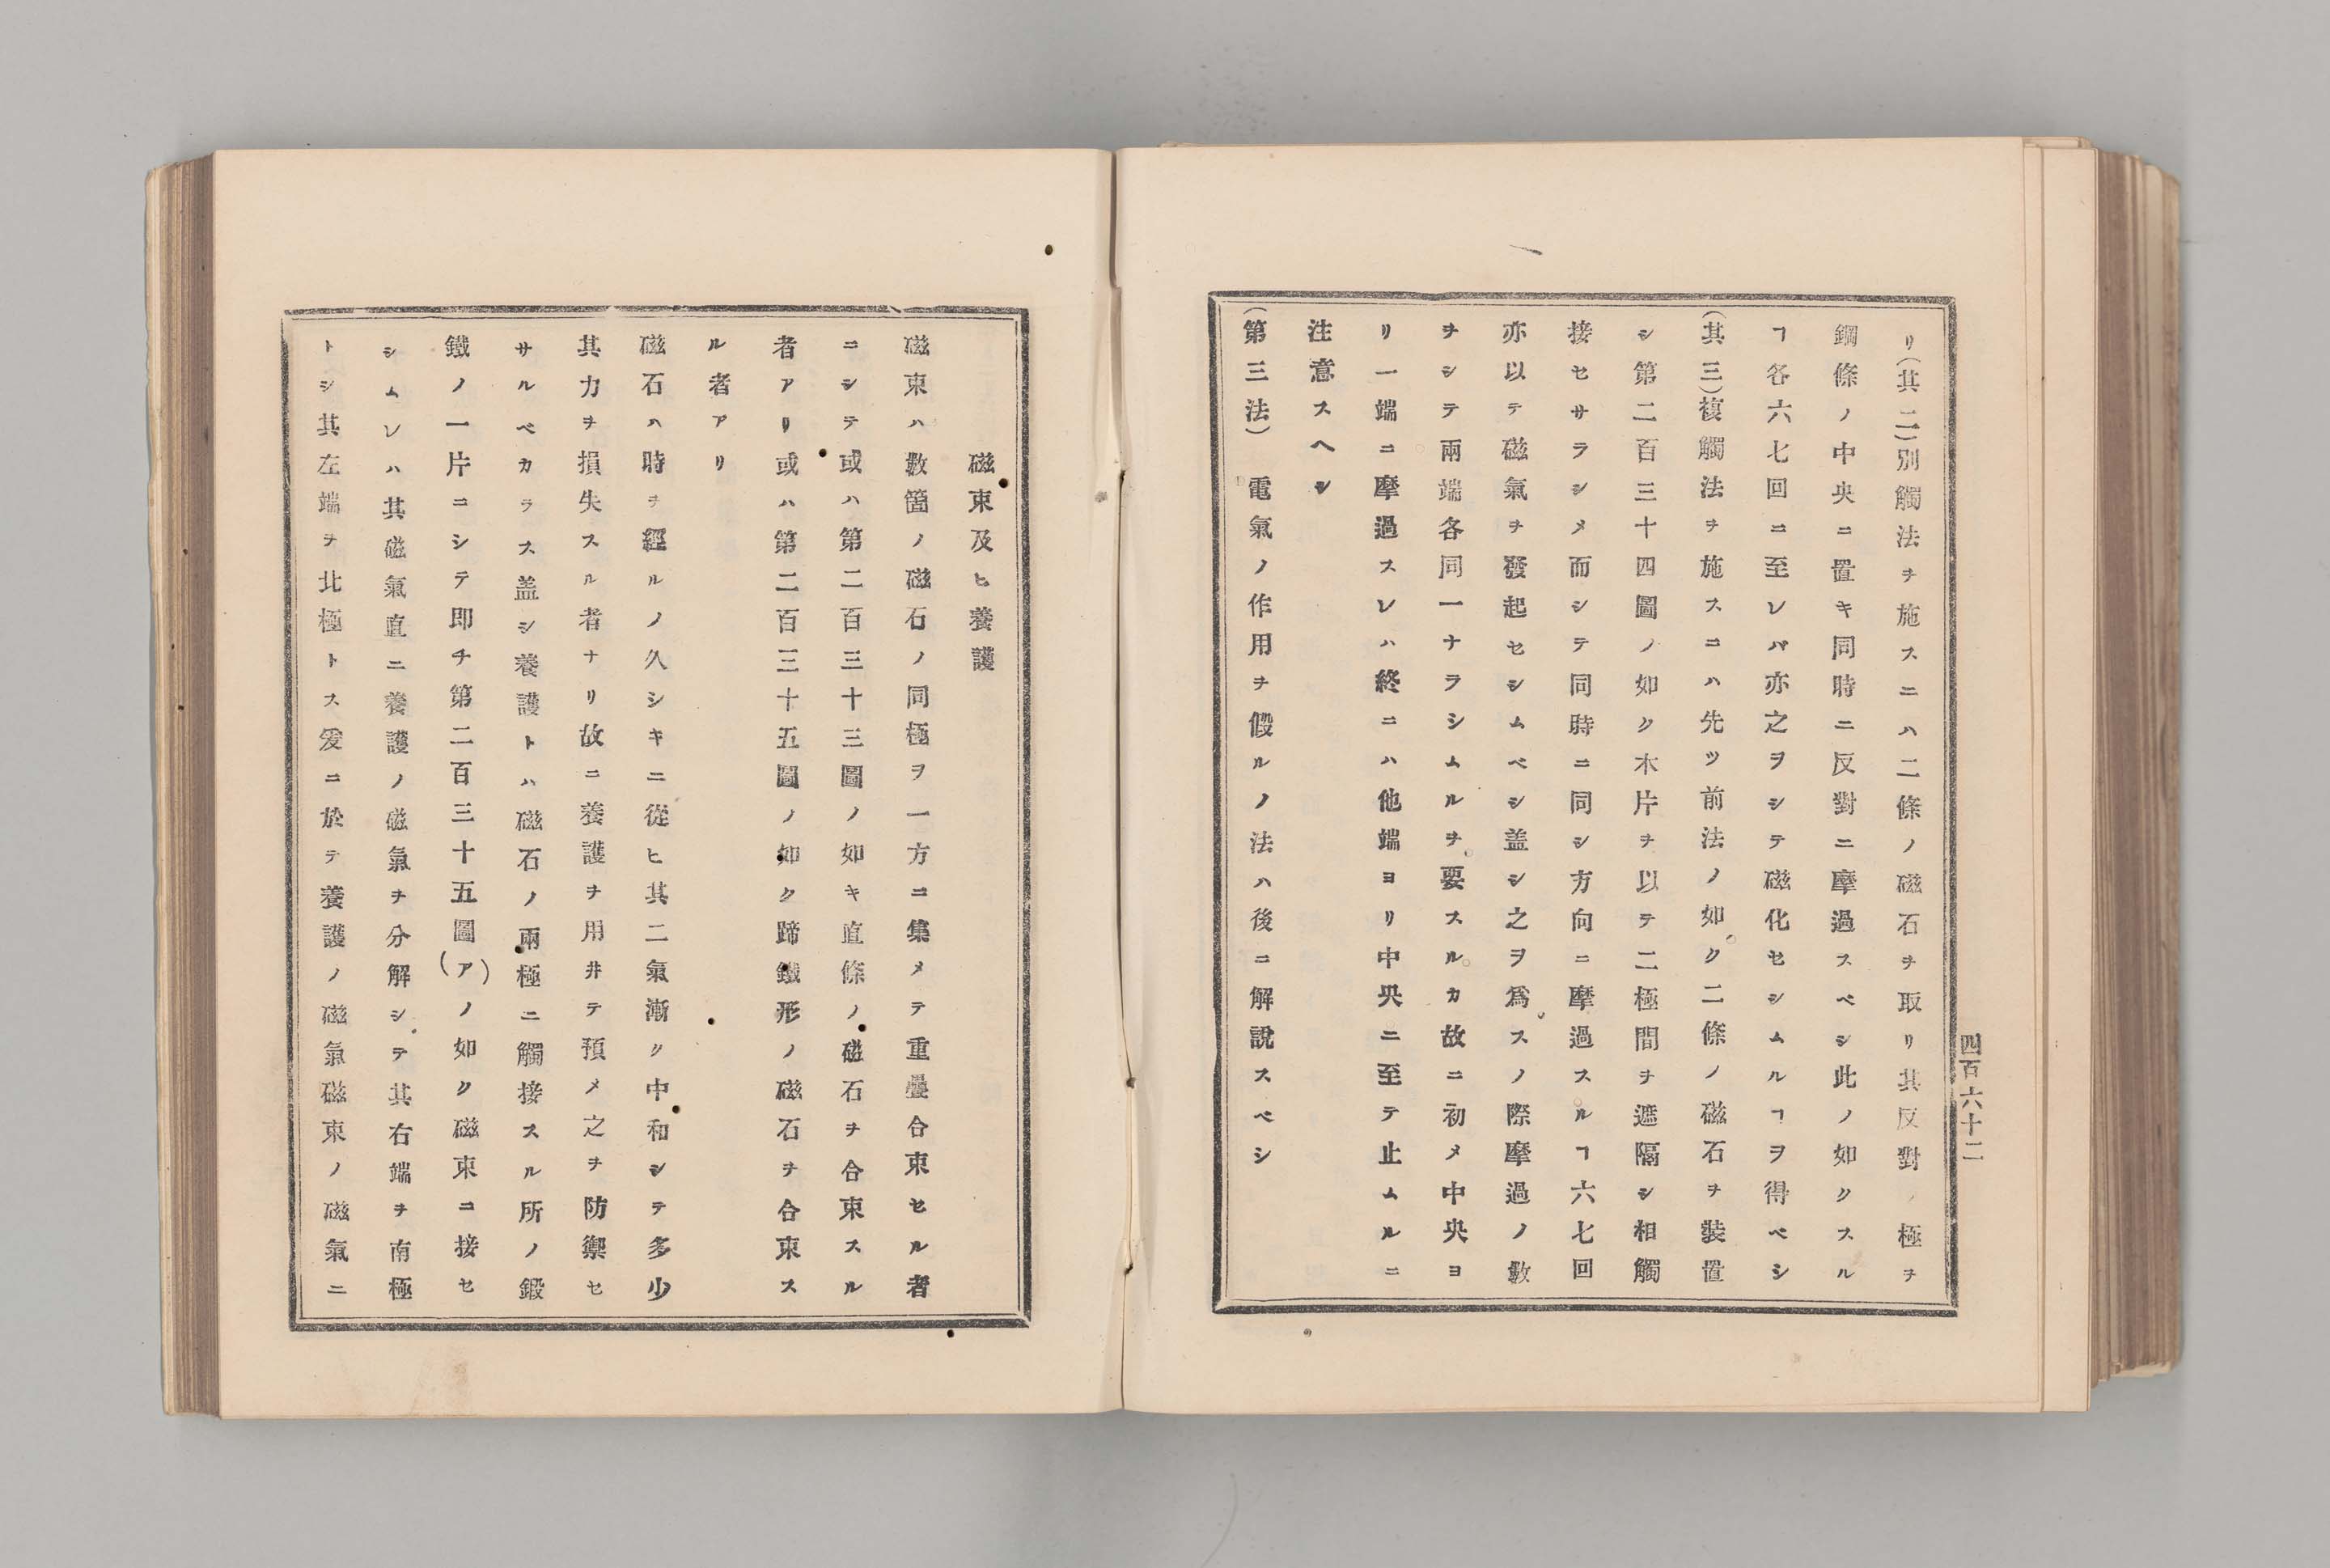 リ(其二)別觸法ヲ施スニハ二條ノ磁石ヲ取リ其反對ノ極ヲ
鋼條ノ中央ニ置キ同時ニ反對ニ摩過スベシ此ノ如クスル
ヿ各六七回ニ至レバ亦之ヲシテ磁化セシムルヿヲ得ベシ
(其三)複觸法ヲ施スニハ先ツ前法ノ如ク二條ノ磁石ヲ裝置
シ第二百三十四圖ノ如ク木片ヲ以テ二極間ヲ遮隔シ相觸
接セサラシメ而シテ同時ニ同シ方向ニ摩過スルヿ六七回
亦以テ磁氣ヲ發起セシムベシ盖シ之ヲ爲スノ際摩過ノ數
ヲシテ兩端各同一ナラシムルヲ要スルカ故ニ初メ中央ヨ
リ一端ニ摩過スレハ終ニハ他端ヨリ中央ニ至テ止ムルニ
注意スヘシ
(第三法) 電氣ノ作用ヲ假ルノ法ハ後ニ解說スベシ
四百六十二
磁束及ヒ養護
磁束ハ數箇ノ磁石ノ同極ヲ一方ニ集メテ重疊合束セル者
ニシテ或ハ第二百三十三圖ノ如キ直條ノ磁石ヲ合束スル
者アリ或ハ第二百三十五圖ノ如ク蹄鐵形ノ磁石ヲ合束ス
ル者アリ
磁石ハ時ヲ經ルノ久シキニ從ヒ其二氣漸ク中和シテ多少
其力ヲ損失スル者ナリ故ニ養護ヲ用井テ預メ之ヲ防禦セ
サルベカラス盖シ養護トハ磁石ノ兩極ニ觸接スル所ノ鍛
鐵ノ一片ニシテ即チ第二百三十五圖(ア)ノ如ク磁束ニ接セ
シムレハ其磁氣直ニ養護ノ磁氣ヲ分解シテ其右端ヲ南極
トシ其左端ヲ北極トス爰ニ於テ養護ノ磁氣磁束ノ磁氣ニ